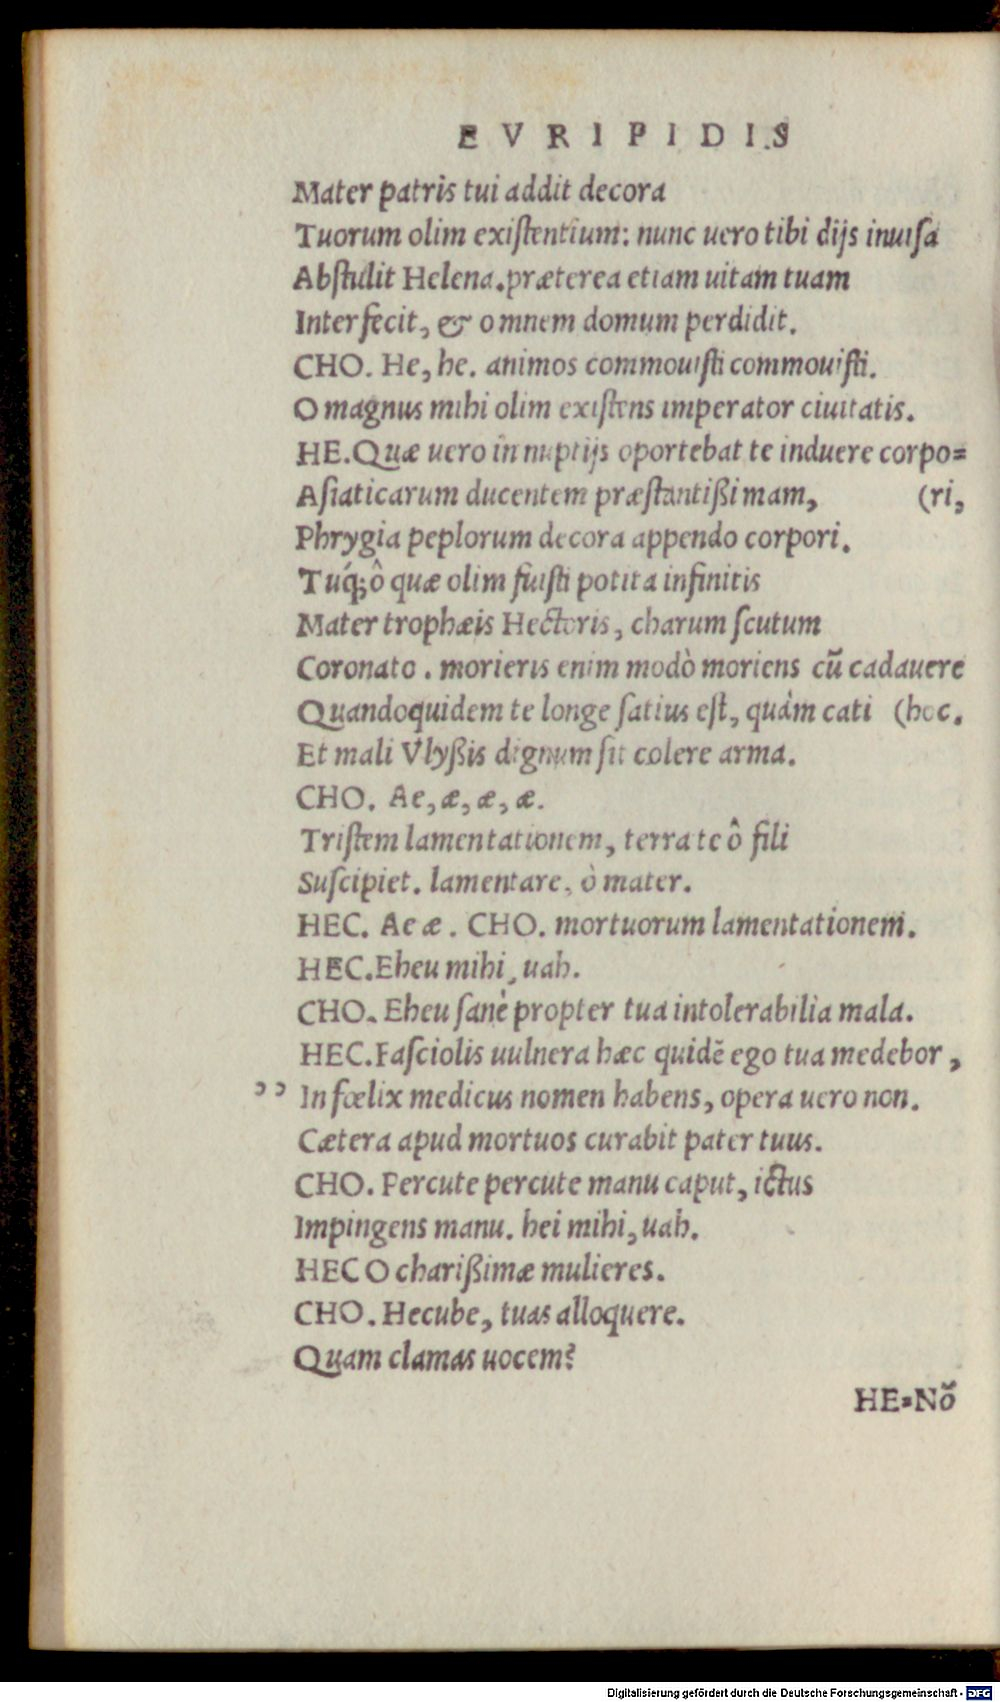 EVRIPIDIS
Mater patris tui addit decora
Tuorum olim exiſtentium: nunc uero tibi dijs inuiſa
Abſtulit Helena.præterea etiam uitam tuam
Interfecit, & omnem domum perdidit.
CHO. He, he. animos commouiſti commouiſti.
O magnus mihi olim exiſtens imperator ciuitatis.
HE.Quæ uero in nuptijs oportebat te induere corpo=
Aſiaticarum ducentem præſtantißimam, (ri,
Phrygia peplorum decora appendo corpori.
Tuq́;ô quæ olim fuiſti potita infinitis
Mater trophæis Hectoris, charum ſcutum
Coronato. morieris enim modò moriens cū cadauere
Quandoquidem te longe ſatius eſt, quàm cati (hoc.
Et mali Vlyßis dignum ſit colere arma.
CHO. Ae, æ, æ, æ.
Triſtem lamentationem, terra te ô fili
Suſcipiet. lamentare, ò mater.
HEC. Ae æ. CHO. mortuorum lamentationem.
HEC.Eheu mihi, uah.
CHO. Eheu ſanè propter tua intolerabilia mala.
HEC.Faſciolis uulnera hæc quidē ego tua medebor,
ↄↄ Infœlix medicus nomen habens, opera uero non.
Cætera apud mortuos curabit pater tuus.
CHO. Percute percute manu caput, ictus
Impingens manu. hei mihi, uah.
HEC O charißimæ mulieres.
CHO. Hecube, tuas alloquere.
Quam clamas uocem?
HE=Nō
Digitalisierung gefördert durch die Deutsche Forschungsgemeinschaft - DFG